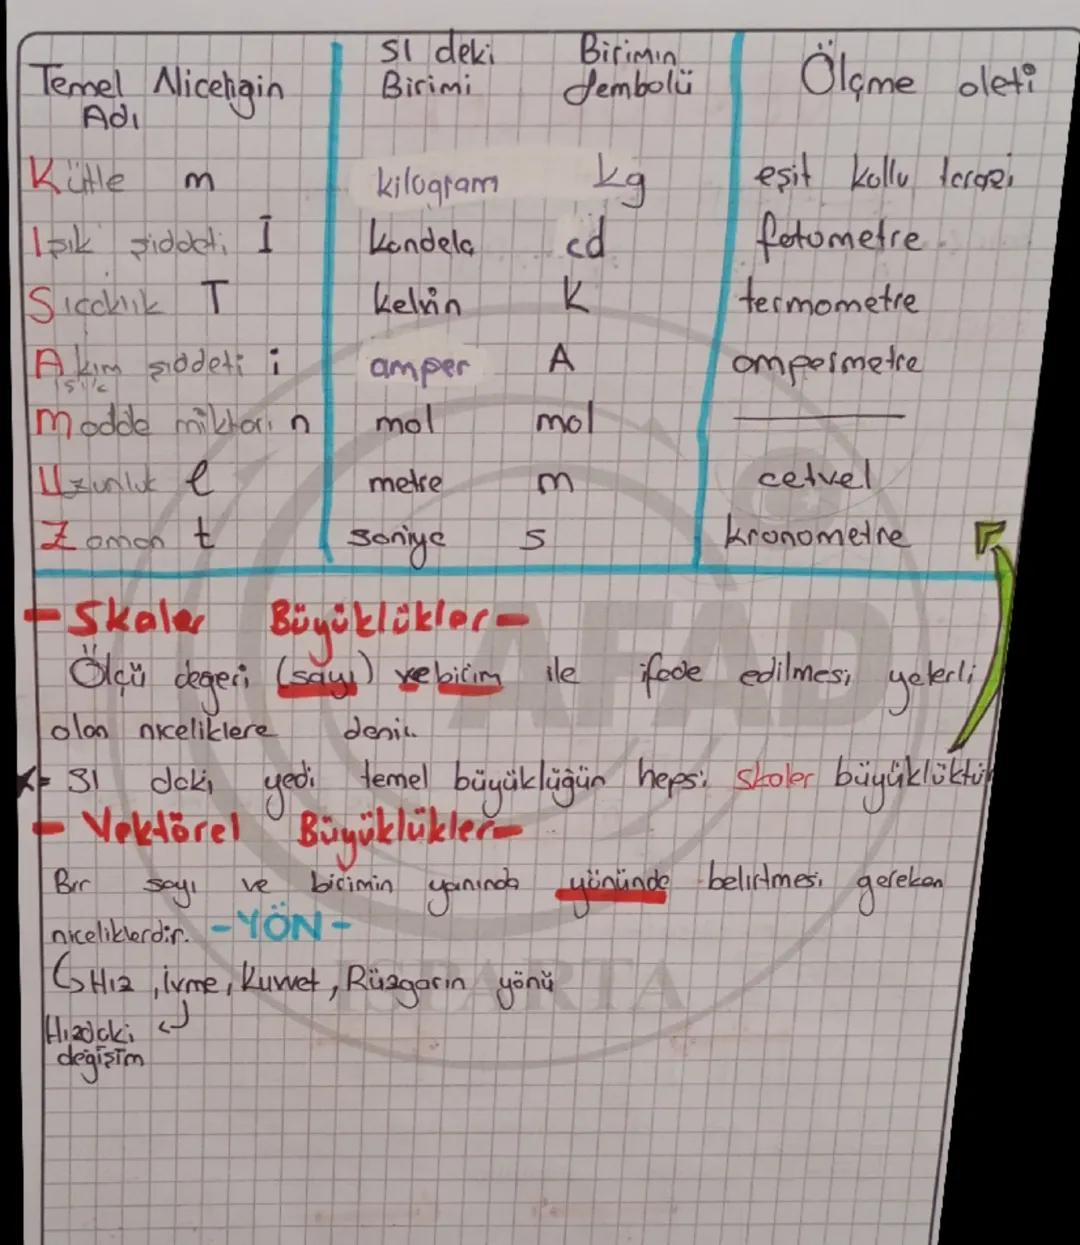 Temel Niceliğin Adı | SI deki Birimi | Birimin Sembolü | Ölçme aleti
Kütle m | kilogram | kg | eşit kollu terazi
Işık şiddeti I | kandela | cd | fotometre
Sıcaklık T | kelvin | K | termometre
Akım şiddeti i | amper | A | ampermetre
Madde miktarı n | mol | mol | ———
Uzunluk l | metre | m | cetvel
Zaman t | saniye | s | kronometre
- Skaler Büyüklükler -
Ölçü değeri (sayı) ve birim ile ifade edilmesi yeterli
olan niceliklere denir.
SI daki yedi temel büyüklüğün hepsi skaler büyüklüktür
- Vektörel Büyüklükler -
Bir sayı ve birimin yanında yönünde belirtmesi gereken
niceliklerdir. - YÖN -
↳ Hız, ivme, kuvvet, Rüzgarın yönü
Hızdaki
değişim
AFAD
ISPARTA